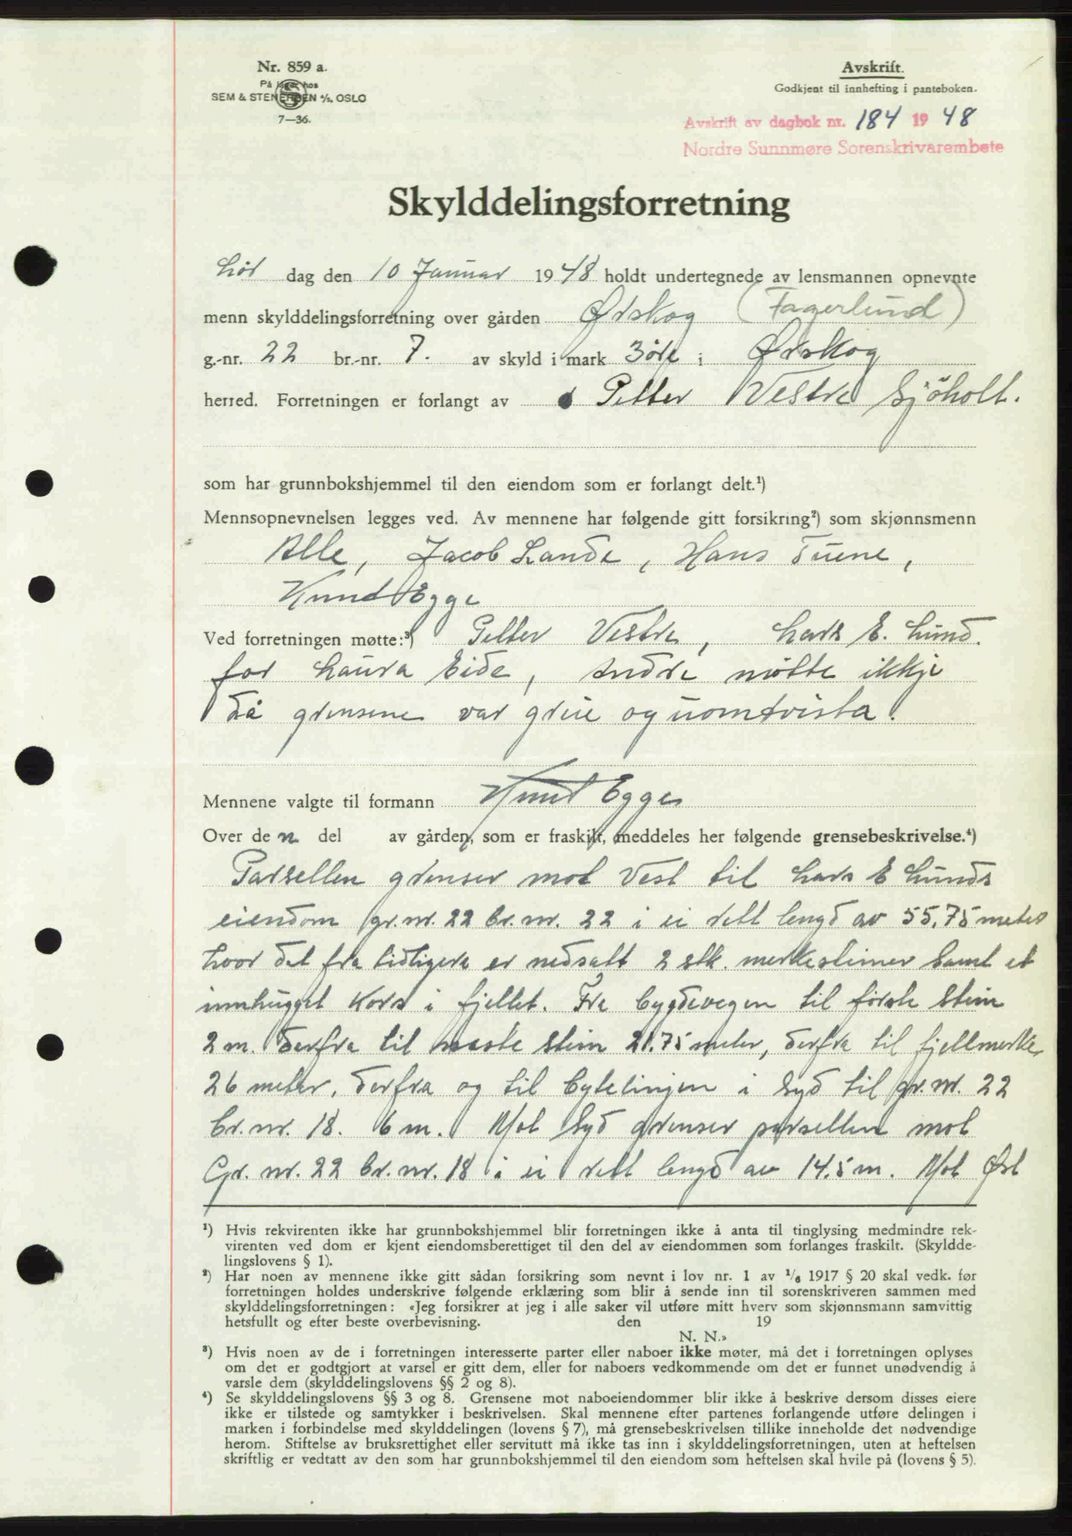 Nr. 859 a.
På lager hos
SEM & STENERSEN A/S, OSLO
7—36.
Avskrift.
Godkjent til innhefting i panteboken.
Avskrift av dagbok nr. 184 1948
Nordre Sunnmøre Sorenskrivarembete
Skylddelingsforretning
Lør dag den 10 Januar 1948 holdt undertegnede av lensmannen opnevnte
menn skylddelingsforretning over gården Ørskog (Fagerlund)
g.-nr. 22 br.-nr. 7. av skyld i mark 3 øre i Ørskog
herred. Forretningen er forlangt av Petter Vestre Sjöholt.
som har grunnbokshjemmel til den eiendom som er forlangt delt.¹)
Mennsopnevnelsen legges ved. Av mennene har følgende gitt forsikring²) som skjønnsmenn
Alle, Jacob Lande, Hans Tuene,
Knut Egge
Ved forretningen møtte:³) Petter Vestre, Lars E. Lund.
for Laura Eide, Andre møtte ikkje
då grensene var greie og uomtvista.
Mennene valgte til formann Knut Egge
Over den del av gården, som er fraskilt, meddeles her følgende grensebeskrivelse.⁴)
Parsellen grenser mot Vest til Lars E Lunds
eiendom gr.nr. 22 br.nr. 22 i ei rett lengd av 55,75 meter
hvor det fra tidligere er nedsatt 2 stk. merkesteiner samt et
innhugget kors i fjellet. Fra bygdevegen til første stein
2 m. derfra til næste stein 21.75 meter, derfra til fjellmerke
26 meter, derfra og til bytelinjen i Syd til gr.nr. 22
br.nr. 18. 6 m. Mot Syd grenser parsellen mot
Gr. nr. 22 br.nr. 18 i ei rett lengd av 14.5 m. Mot Øst
¹) Hvis rekvirenten ikke har grunnbokshjemmel blir forretningen ikke å anta til tinglysing medmindre rek-
virenten ved dom er kjent eiendomsberettiget til den del av eiendommen som forlanges fraskilt. (Skyldde-
lingslovens § 1).
²) Har noen av mennene ikke gitt sådan forsikring som nevnt i lov nr. 1 av 1/6 1917 § 20 skal vedk. før
forretningen holdes underskrive følgende erklæring som blir å sende inn til sorenskriveren sammen med
skylddelingsforretningen: «Jeg forsikrer at jeg i alle saker vil utføre mitt hverv som skjønnsmann samvittig
hetsfullt og efter beste overbevisning. den 19
N. N.»
³) Hvis noen av de i forretningen interesserte parter eller naboer ikke møter, må det i forretningen oplyses
om det er godtgjort at varsel er gitt dem, eller for naboers vedkommende om det er funnet unødvendig å
varsle dem (skylddelingslovens §§ 2 og 8).
⁴) Se skylddelingslovens §§ 3 og 8. Grensene mot naboeiendommer blir ikke å beskrive dersom disses eiere
ikke er tilstede og samtykker i beskrivelsen. Skal mennene efter partenes forlangende utføre delingen i
marken i forbindelse med skylddelingen (lovens § 7), må grensebeskrivelsen tillike inneholde det nødvendige
herom. Stiftelse av bruksrettighet eller servitutt må ikke tas inn i skylddelingsforretningen, uten at heftelsen
skriftlig er vedtatt av den som har grunnbokshjemmel til den eiendom som heftelsen skal hvile på (lovens § 5).